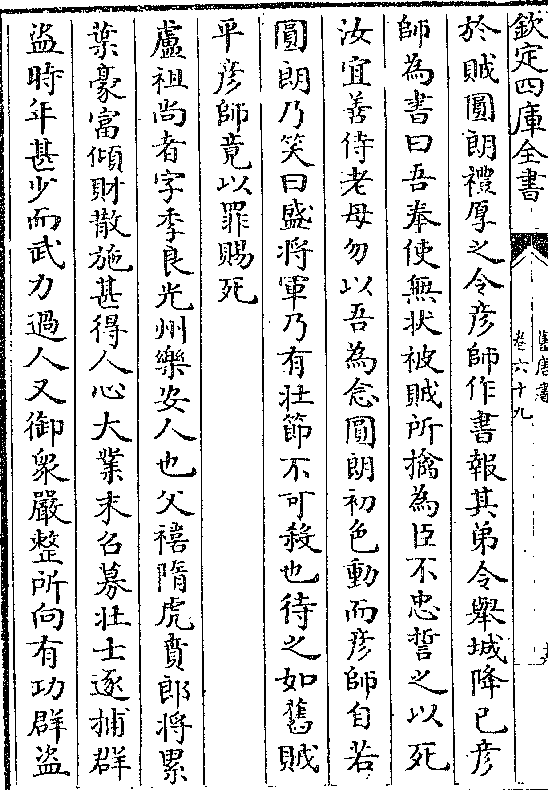 欽定四庫全書
舊唐書
卷六十九
於賊圓朗禮厚之令彦師作書報其弟令舉城降已彦
師為書曰吾奉使無狀被賊所擒為臣不忠誓之以死
汝宜善侍老母勿以吾為念圓朗初色動而彦師自若
圓朗乃笑曰盛將軍乃有壮節不可殺也待之如舊賊
平彦師竟以罪賜死
盧祖尚者字季良光州樂安人也父禧隋虎賁郎將累
葉豪富傾財散施甚得人心大業末召募壮士逐捕群
盗時年甚少而武力過人又御衆嚴整所向有功群盗